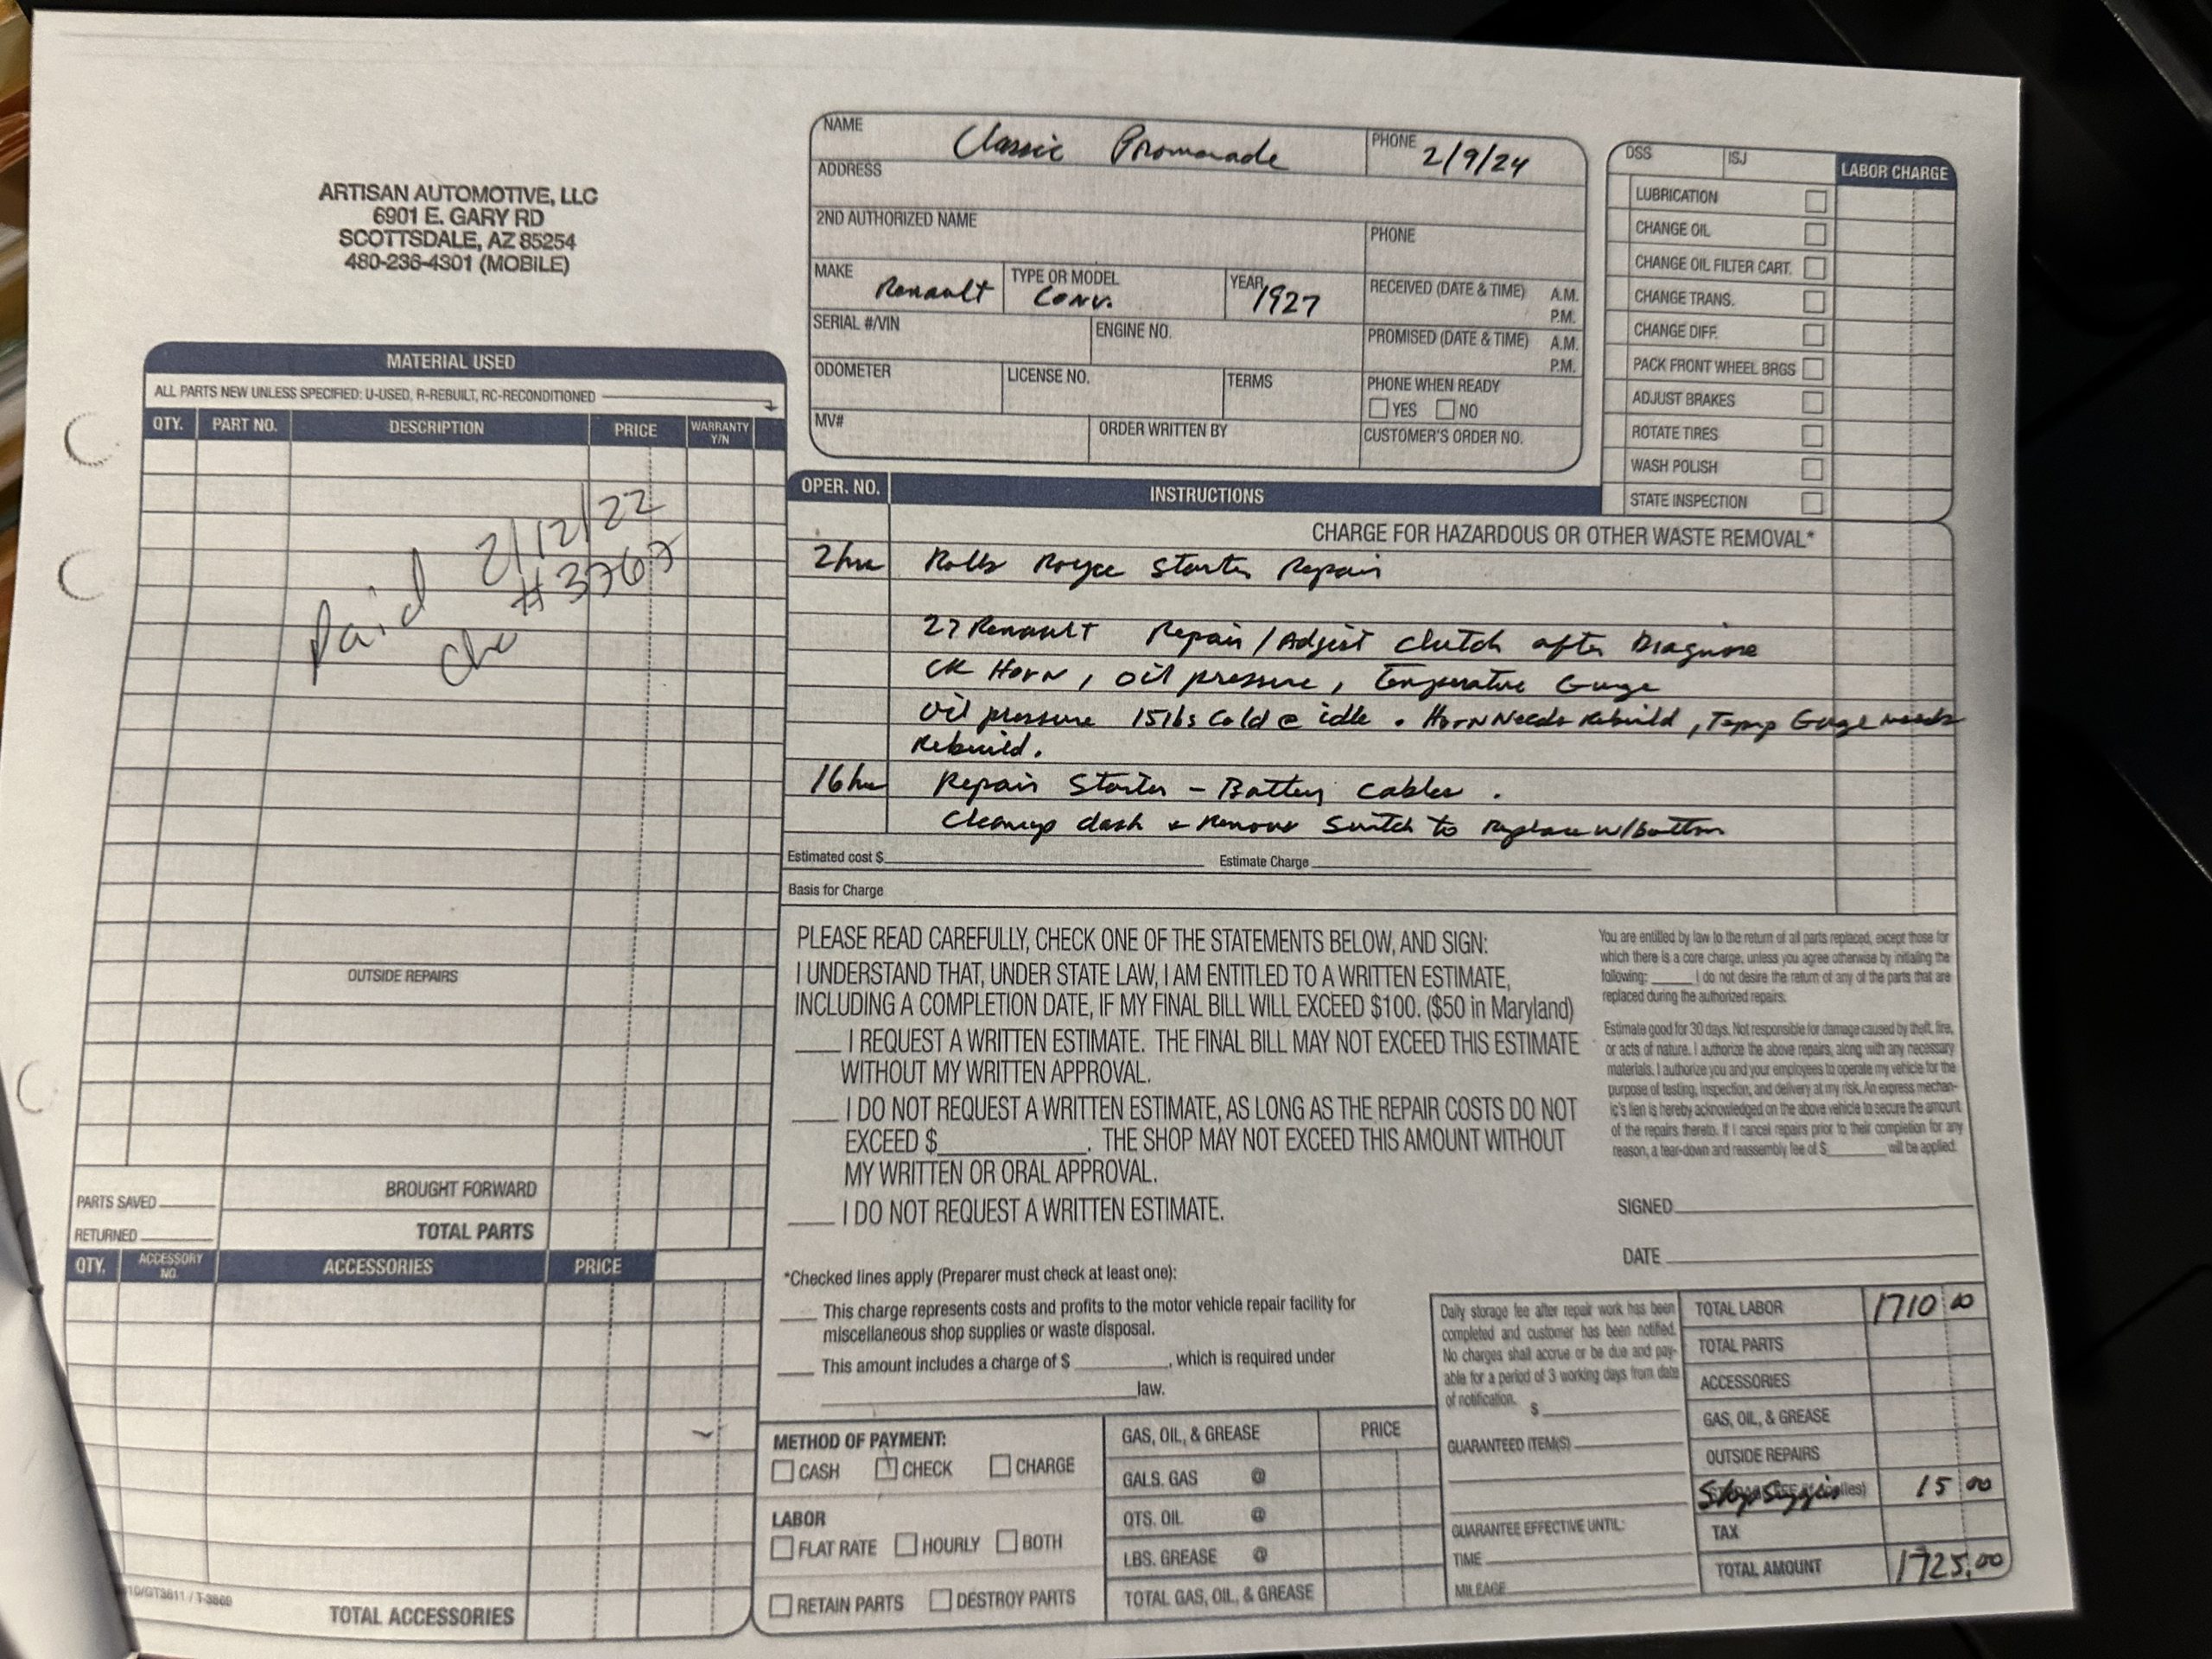 ARTISAN AUTOMOTIVE, LLC
6901 E. GARY RD
SCOTTSDALE, AZ 85254
480-236-4301 (MOBILE)
NAME Classic Promanade
PHONE 2/9/24
ADDRESS
2ND AUTHORIZED NAME
PHONE
MAKE Renault
TYPE OR MODEL Conv.
YEAR 1927
RECEIVED (DATE & TIME) A.M. P.M.
SERIAL #/VIN
ENGINE NO.
PROMISED (DATE & TIME) A.M. P.M.
ODOMETER
LICENSE NO.
TERMS
PHONE WHEN READY
YES NO
MV#
ORDER WRITTEN BY
CUSTOMER'S ORDER NO.
DSS ISJ LABOR CHARGE
LUBRICATION
CHANGE OIL
CHANGE OIL FILTER CART.
CHANGE TRANS.
CHANGE DIFF.
PACK FRONT WHEEL BRGS
ADJUST BRAKES
ROTATE TIRES
WASH POLISH
STATE INSPECTION
MATERIAL USED
ALL PARTS NEW UNLESS SPECIFIED: U-USED, R-REBUILT, RC-RECONDITIONED
QTY. PART NO. DESCRIPTION PRICE WARRANTY Y/N
Paid 2/12/22
#3767
OUTSIDE REPAIRS
PARTS SAVED
BROUGHT FORWARD
RETURNED
TOTAL PARTS
QTY. ACCESSORY NO. ACCESSORIES PRICE
TOTAL ACCESSORIES
OPER. NO. INSTRUCTIONS
CHARGE FOR HAZARDOUS OR OTHER WASTE REMOVAL*
2hr Rolls Royce Starter Repair
27 Renault Repair/Adjust Clutch after Diagnose
CK Horn, Oil pressure, Temperature Guage
Oil pressure 15lbs Cold @ idle. Horn Needs Rebuild, Temp Guage needs
Rebuild.
16hr Repair Starter - Battery cables.
Cleanup dash & Remove Switch to Replace w/button
Estimated cost $ Estimate Charge
Basis for Charge
PLEASE READ CAREFULLY, CHECK ONE OF THE STATEMENTS BELOW, AND SIGN:
I UNDERSTAND THAT, UNDER STATE LAW, I AM ENTITLED TO A WRITTEN ESTIMATE,
INCLUDING A COMPLETION DATE, IF MY FINAL BILL WILL EXCEED $100. ($50 in Maryland)
I REQUEST A WRITTEN ESTIMATE. THE FINAL BILL MAY NOT EXCEED THIS ESTIMATE
WITHOUT MY WRITTEN APPROVAL.
I DO NOT REQUEST A WRITTEN ESTIMATE, AS LONG AS THE REPAIR COSTS DO NOT
EXCEED $ . THE SHOP MAY NOT EXCEED THIS AMOUNT WITHOUT
MY WRITTEN OR ORAL APPROVAL.
I DO NOT REQUEST A WRITTEN ESTIMATE.
You are entitled by law to the return of all parts replaced, except those for
which there is a core charge, unless you agree otherwise by initialing the
following: I do not desire the return of any of the parts that are
replaced during the authorized repairs.
Estimate good for 30 days. Not responsible for damage caused by theft, fire,
or acts of nature. I authorize the above repairs, along with any necessary
materials. I authorize you and your employees to operate my vehicle for the
purpose of testing, inspection, and delivery at my risk. An express mechan-
ic's lien is hereby acknowledged on the above vehicle to secure the amount
of the repairs thereto. If I cancel repairs prior to their completion for any
reason, a tear-down and reassembly fee of $ will be applied.
SIGNED
DATE
*Checked lines apply (Preparer must check at least one):
This charge represents costs and profits to the motor vehicle repair facility for
miscellaneous shop supplies or waste disposal.
This amount includes a charge of $ , which is required under
law.
METHOD OF PAYMENT:
CASH CHECK CHARGE
LABOR
FLAT RATE HOURLY BOTH
RETAIN PARTS DESTROY PARTS
GAS, OIL, & GREASE PRICE
GALS. GAS @
QTS. OIL @
LBS. GREASE @
TOTAL GAS, OIL, & GREASE
Daily storage fee after repair work has been
completed and customer has been notified.
No charges shall accrue or be due and pay-
able for a period of 3 working days from date
of notification. $
GUARANTEED ITEM(S)
GUARANTEE EFFECTIVE UNTIL:
TIME
MILEAGE
TOTAL LABOR 1710 00
TOTAL PARTS
ACCESSORIES
GAS, OIL, & GREASE
OUTSIDE REPAIRS
Shop 15 00
TAX
TOTAL AMOUNT 1725.00